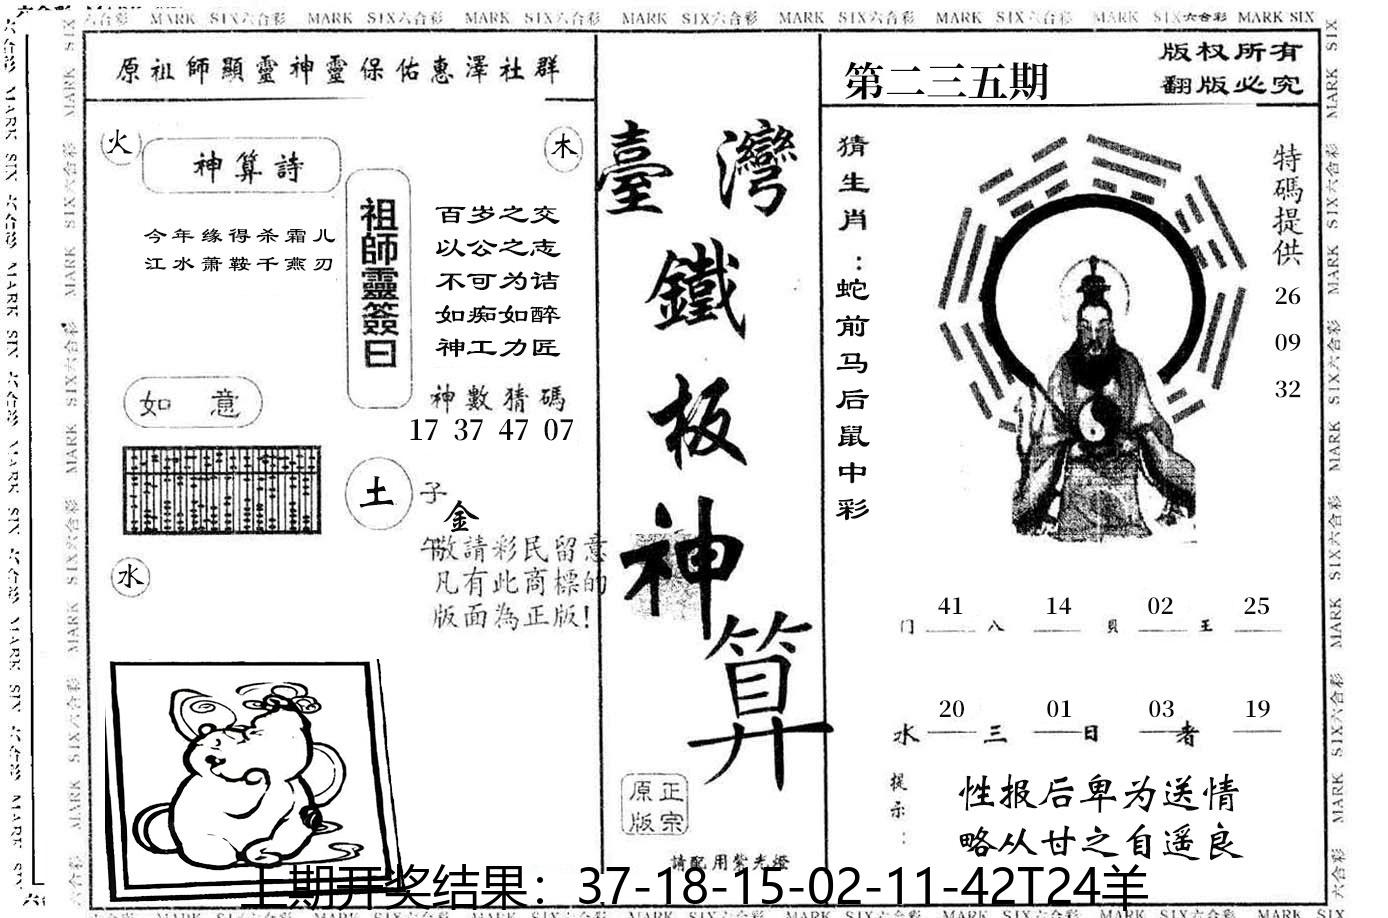 MARK SIX六合彩 MARK SIX六合彩 MARK SIX六合彩 MARK SIX六合彩 MARK SIX六合彩 MARK SIX六合彩 MARK SIX六合彩 MARK SIX
原祖師顯靈神靈保佑惠澤社群
火
神算詩
木
今年缘得杀霜儿
江水萧鞍千燕刃
祖師靈簽曰
百岁之交
以公之志
不可为诘
如痴如醉
神工力匠
神數猜碼
17 37 47 07
如 意
土
子
金
午
敬請彩民留意
凡有此商標的
版面為正版!
水
臺灣
鐵
板
神
算
正宗
原版
請配用紫光燈
第二三五期
版权所有
翻版必究
猜生肖:蛇前马后鼠中彩
特碼提供
26
09
32
41 14 02 25
门 八 貝 王
20 01 03 19
水 三 日 者
提示:
性报后卑为送情
略从甘之自遥良
上期开奖结果：37-18-15-02-11-42T24羊